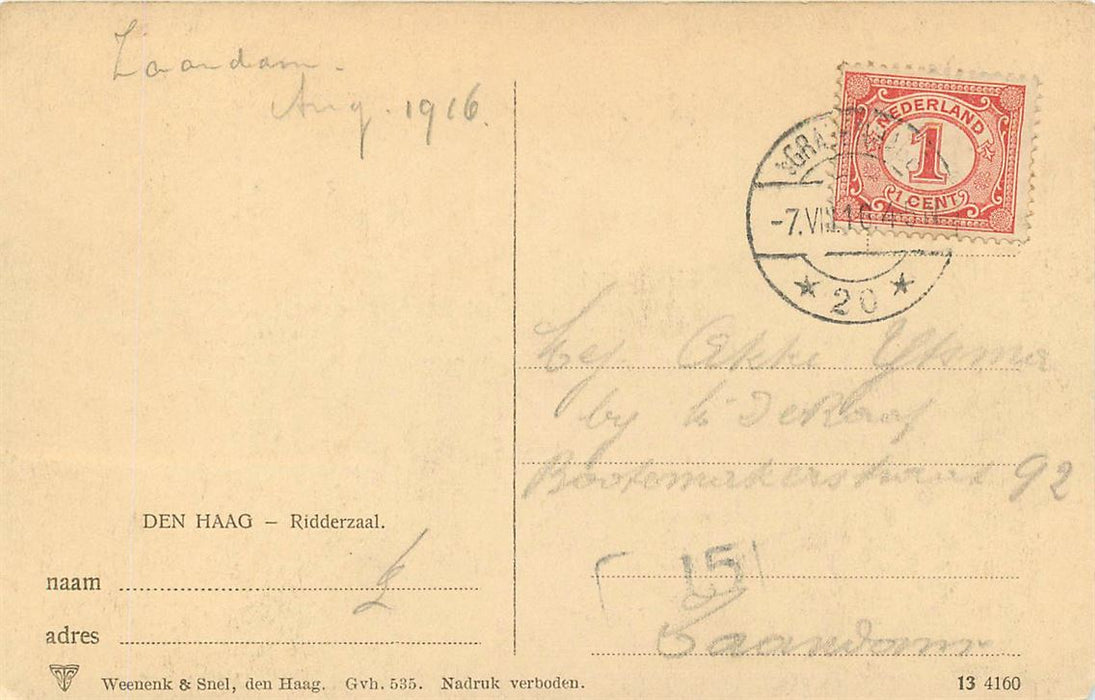 Zaandam.
Aug. 1916.
NEDERLAND
1
1 CENT
-7.VIII.16.4
* 20 *
Okke Ykema
by
Bootemakerstraat 92
15
Zaandam
DEN HAAG – Ridderzaal.
naam
adres
Weenenk & Snel, den Haag. Gvh. 535. Nadruk verboden.
13 4160